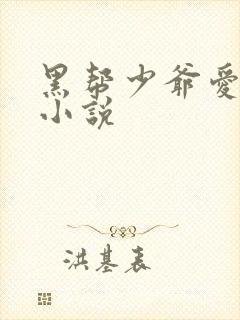 黑帮少爷爱
小说
洪基表